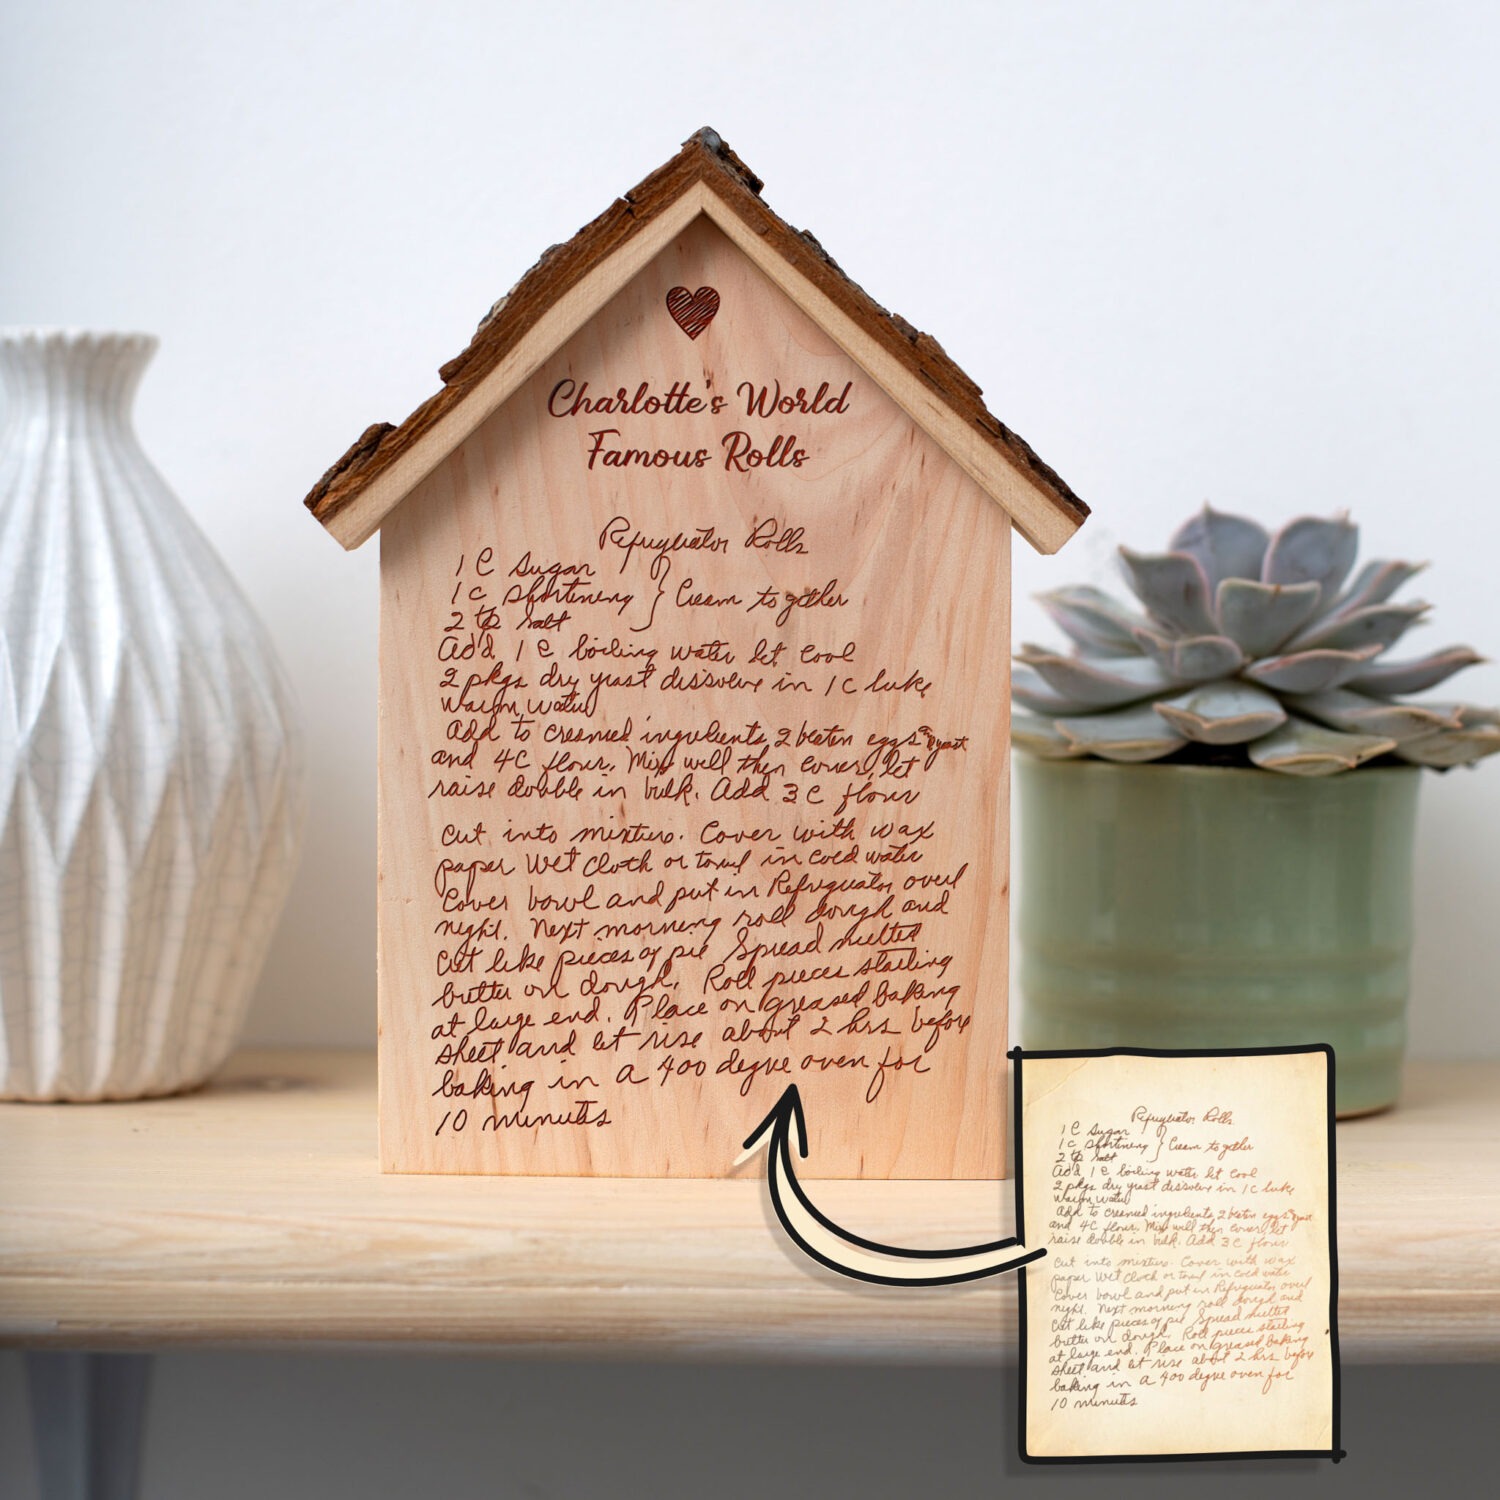 Charlotte's World
Famous Rolls
Refrigerator Rolls
1 C Sugar
1 C Shortening } Cream together
2 tsp Salt
Add 1 C boiling water let cool
2 pkgs dry yeast dissolve in 1 C luke
warm water
Add to creamed ingredients 2 beaten eggs and yeast
and 4C flour. Mix well then cover, let
raise double in bulk. Add 3 C flour
Cut into mixture. Cover with wax
paper Wet Cloth or towel in cold water
Cover bowl and put in Refrigerator over
night. Next morning roll dough and
Cut like pieces of pie Spread melted
butter on dough. Roll pieces starting
at large end. Place on greased baking
sheet and let rise about 2 hrs before
baking in a 400 degree oven for
10 minutes
Refrigerator Rolls
1 C Sugar
1 C Shortening } Cream together
2 tsp Salt
Add 1 C boiling water let cool
2 pkgs dry yeast dissolve in 1 C luke
warm water
Add to creamed ingredients 2 beaten eggs and yeast
and 4C flour. Mix well then cover, let
raise double in bulk. Add 3 C flour
Cut into mixture. Cover with wax
paper Wet Cloth or towel in cold water
Cover bowl and put in Refrigerator over
night. Next morning roll dough and
Cut like pieces of pie Spread melted
butter on dough. Roll pieces starting
at large end. Place on greased baking
sheet and let rise about 2 hrs before
baking in a 400 degree oven for
10 minutes